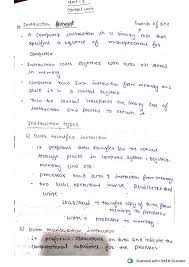 Unit - 2
Control unit
Instruction format
- A Computer instruction is a binary code that
specifies a sequence of microoperations for
computer.
- Instruction codes together with data are stored
in memory
- Computer reads each instruction from memory and
place it in a control register
- Then the control interprets the binary code of
instruction and proceed to execute it
Instruction types
1) Data transfer instruction
- it performs data transfer b/w the various
storage places in computer system - registers,
memory and I/O.
- Processor reads data & instruction from
memory
- two basic operations are
load/read → transfers copy of data from
memory to processor
write → processor to memory
2) Data manipulation instruction
- it performs operations on data and indicate the
computational capabilities for the processor
Scanned with OKEN Scanner